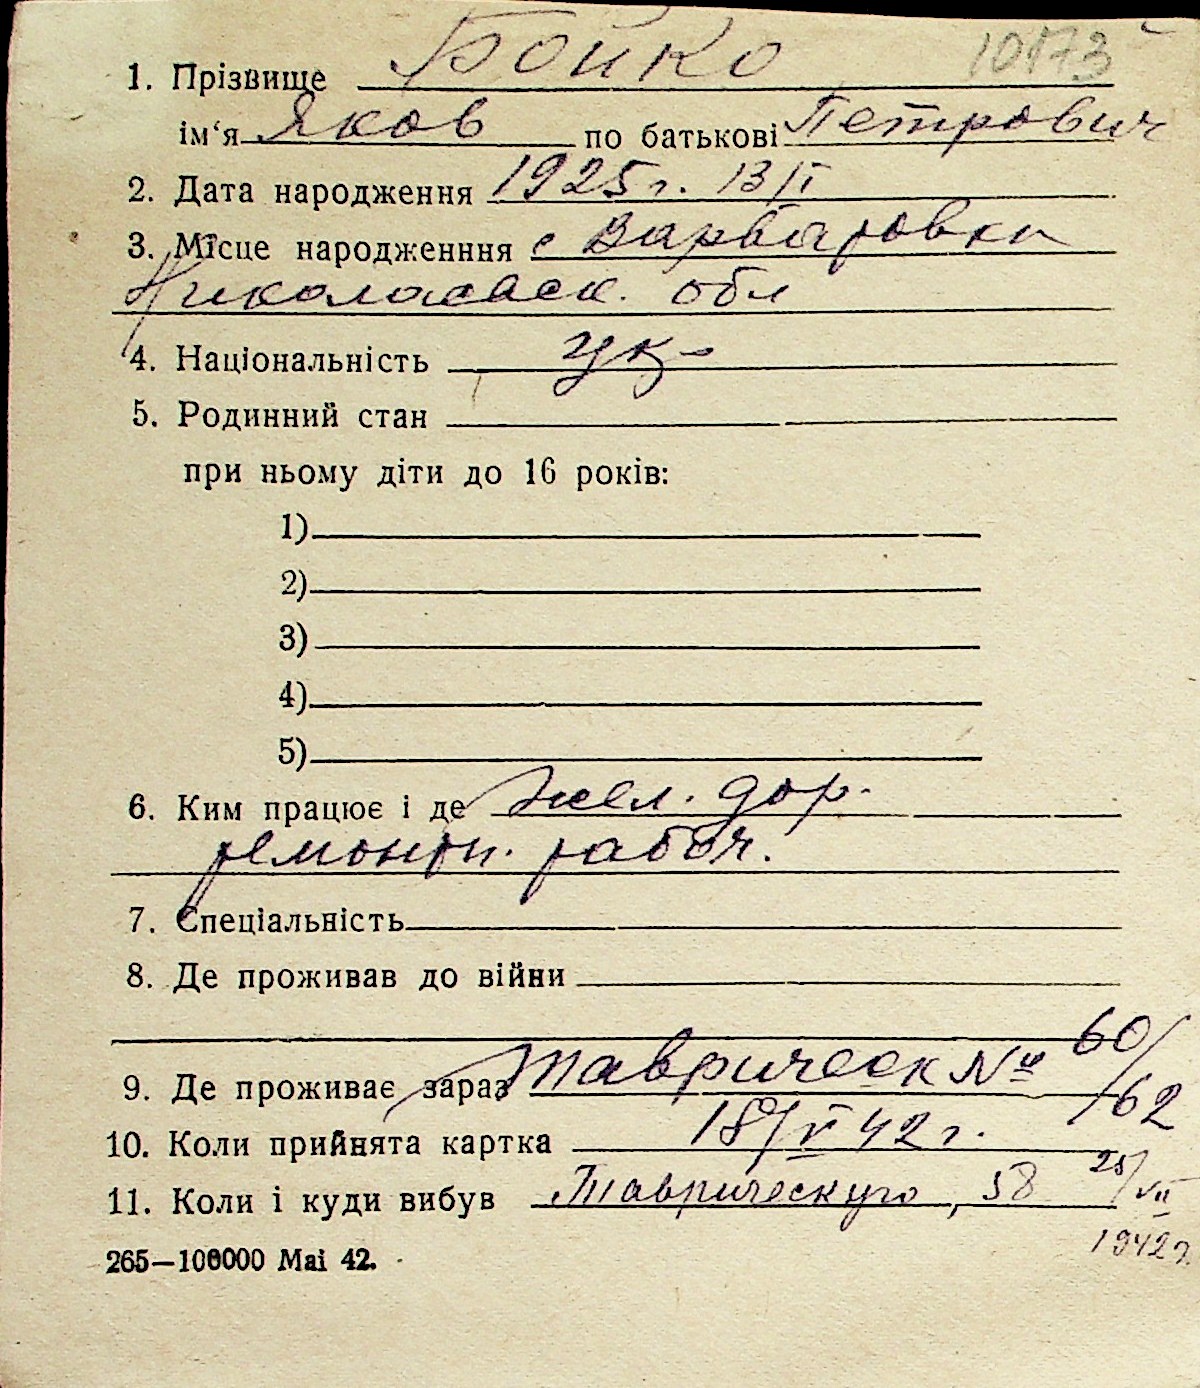 10173
1. Прізвище Бойко
ім‘я Яков по батькові Петрович
2. Дата народження 1925 г. 13/I
3. Місце народженння с Варваровка
Николаевск. обл
4. Національність ук-
5. Родинний стан
при ньому діти до 16 років:
1)
2)
3)
4)
5)
6. Ким працює і де жел. дор.
ремонтн. рабоч.
7. Спеціальність
8. Де проживав до війни
9. Де проживає зараз Таврическ № 60/62
10. Коли прийнята картка 18/V 42 г.
11. Коли і куди вибув Таврическую, 58 25/VII
1942 г.
265—100000 Mai 42.